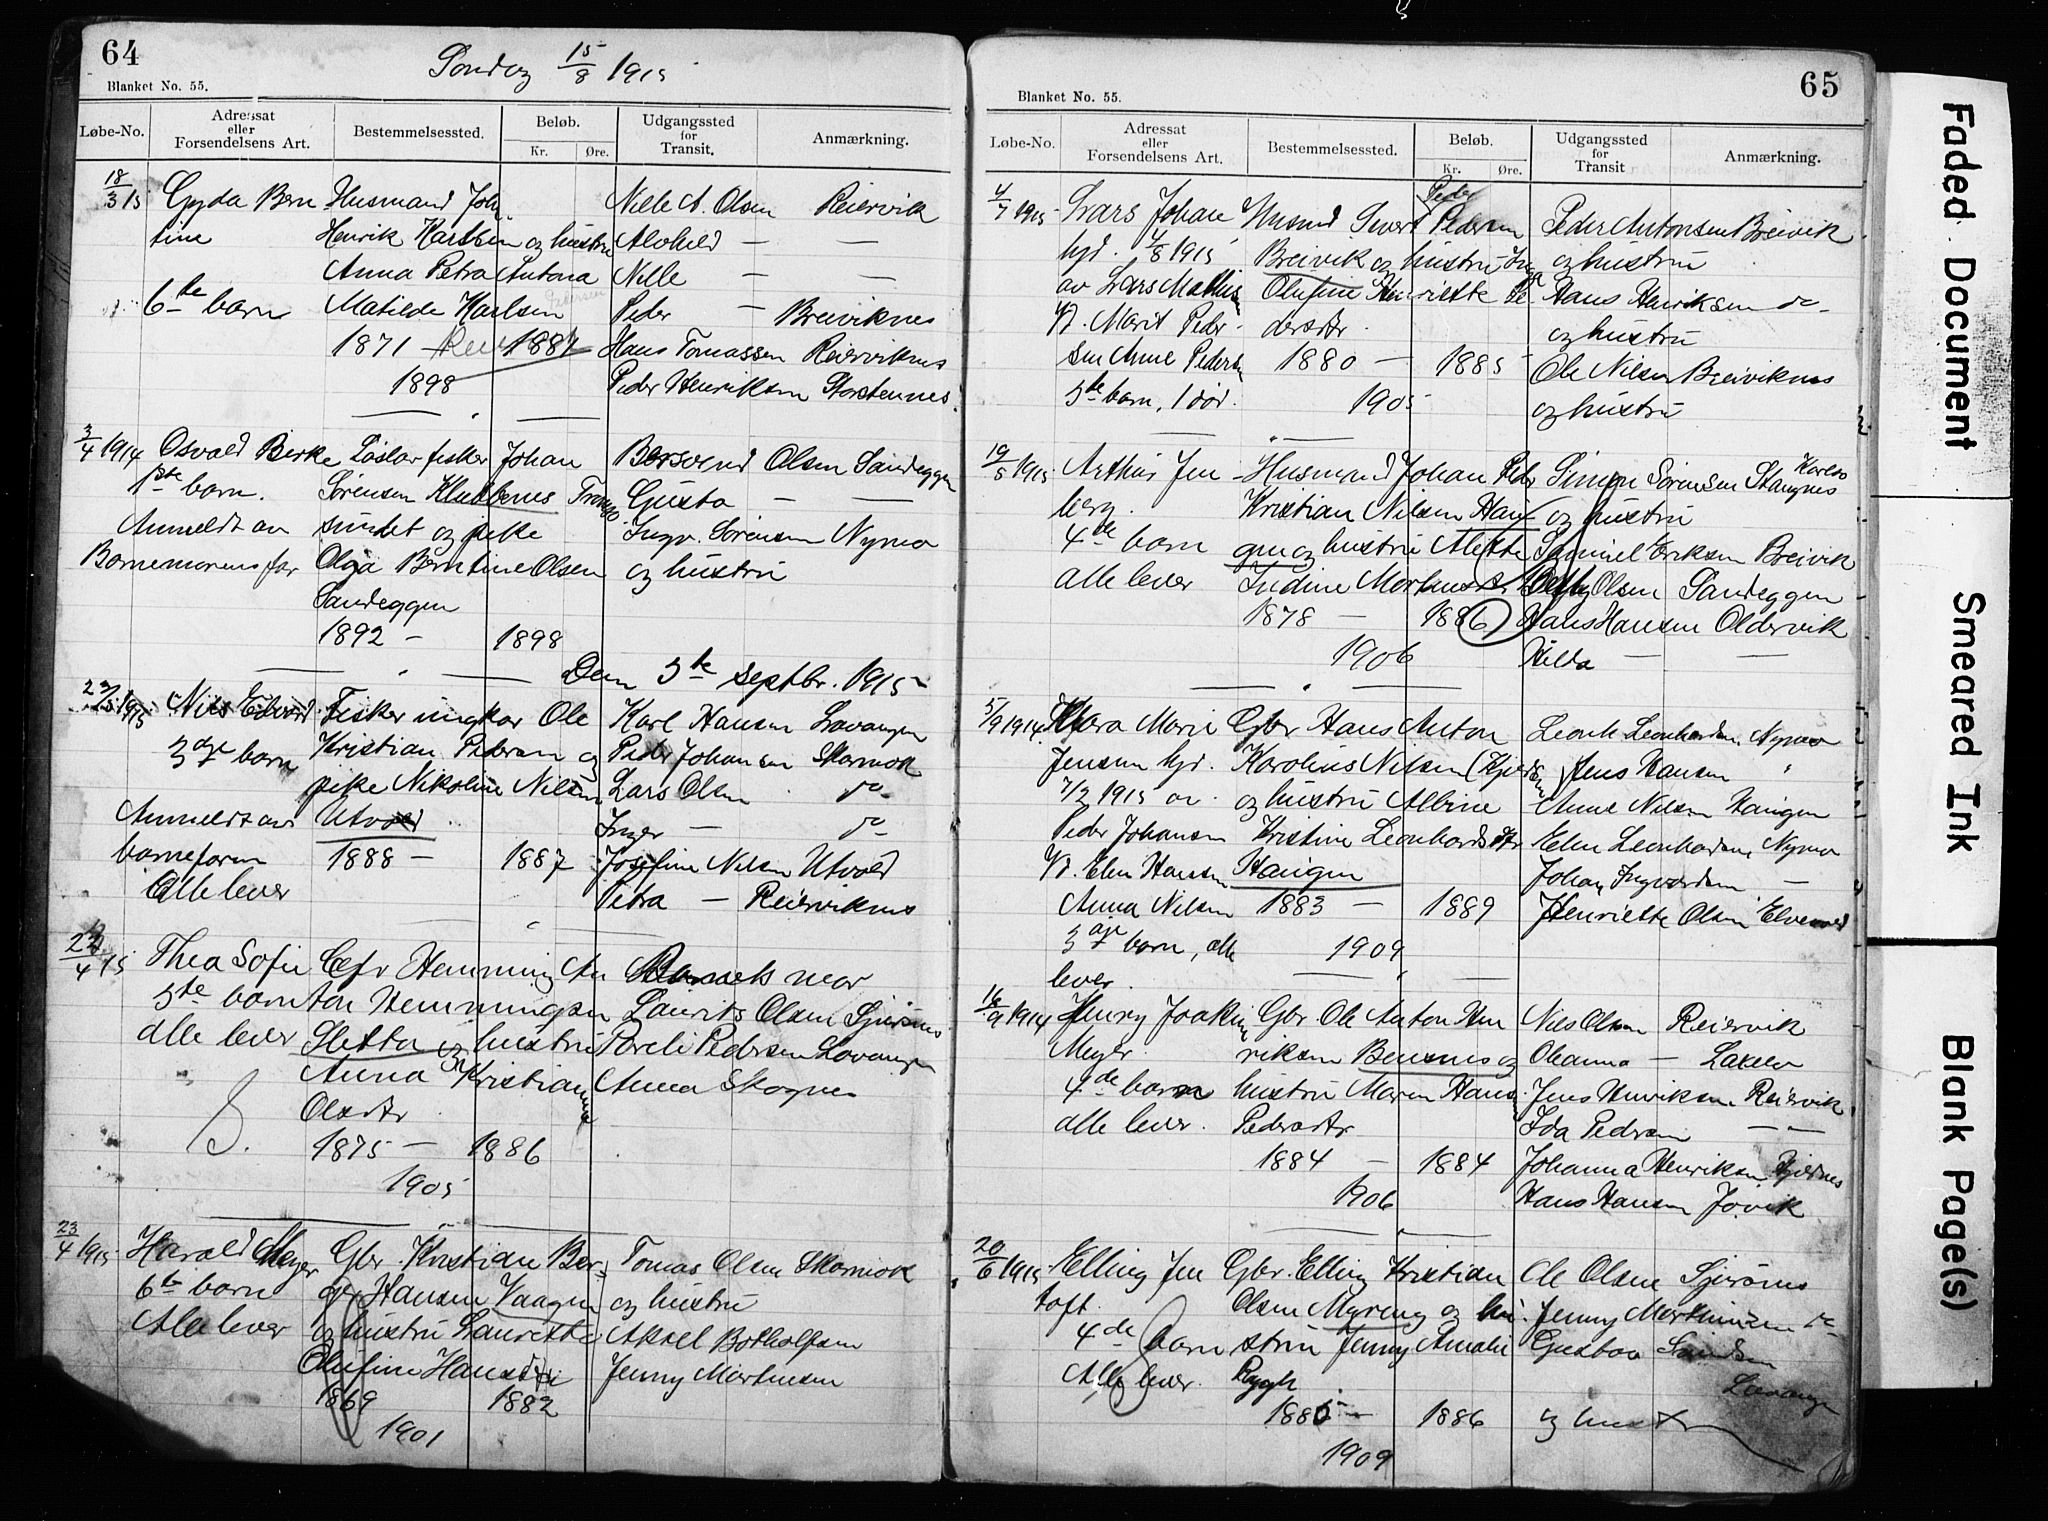 64
Sondag 15/8 1915
Blanket No. 55.
Løbe-No. Adressat eller Forsendelsens Art. Bestemmelsessted. Beløb. Kr. Øre. Udgangssted for Transit. Anmærkning.
18/3 15 Gyda Bern- Husmand Joh. Nelle A. Olsen Reiervik
tine Henrik Karlsen og hustru Alvhild — —
Anna Petra Antona Nille — —
6te barn Matilde Karlsen Peder — Breiviknes
1871 — 1887 Hans Tomassen Reierviknes
1898 Peder Henriksen Storstennes.
3/4 1914 Osvald Birke Løslar fisker Johan Bersvend Olsen Sandeggen
1ste barn. Sørensen Klubbenes Tromsø Gusta — —
Anmeldt av sundet og pike Ingv. Sørensen Nymo
Barnemorens far Olga Berntine Olsen og hustru
Sandeggen
1892 - 1898
Den 5te septbr. 1915
1915 Nils Edvard Fisker ungkar Ole Karl Hansen Lavangen
3dje barn Kristian Pedersen og Peder Johansen Skarmok
pike Nikoline Nilsen Lars Olsen do
Anmeldt av Utvold Inger — do
barnefaren 1888 — 1887 Josefine Nilsen Utvold
Alle lever Petra — Reierviknes
22/4 15 Thea Sofie Gbr Hemming An Barnets mor
5te barn ton Hemmingsen Laurits Olsen Sjursnes
alle lever Sletta og hustru Pareli Pedersen Lavangen
Anna Kristianna Anna Skognes
Olsdtr
1875 — 1886
1905
23/4 1915 Harald Meyer Gbr. Kristian Ber- Tomas Olsen Skarmok
6te barn ger Hansen Vaagen og hustru
Alle lever og hustru Laurette Aksel Botholfsen
Olufine Hansdtr Jenny Martinsen
1869 1882
1901
65
Blanket No. 55.
Løbe-No. Adressat eller Forsendelsens Art. Bestemmelsessted. Beløb. Kr. Øre. Udgangssted for Transit Anmærkning.
4/7 1915 Lars Johan Husmd Sivert Peder Pedersen Peder Antonsen Breivik
hjd. 4/8 1915 Breivik og hustru Inga og hustru
av Lars Mathisen Olufine Henriette Pe Hans Henriksen do
V. Marit Peder- dersdtr. og hustru
sen Anne Pedersen 1880 — 1885 Ole Nilsen Breiviknes
5te barn, 1 død. 1905 og hustru
19/5 1915 Arthur Jen- Husmand Johan Peder Simon Sørensen Stangnes Karlsø
berg. Kristian Nilsen Hau og hustru
4de barn gen og hustru Alette Samuel Eriksen Breivik
alle lever Indine Mortensdtr Betsy Olsen Sandeggen
1878 — 1886 Hans Hansen Oldervik
1906 Hilda — —
5/9 1914 Klara Marie Gbr Hans Anton Leonh Leonhardsen Nymo
Jensen hjd. Karolius Nilsen (Kjerds Jens Hansen "
7/2 1915 av og hustru Albine Anne Nilsen Haugen
Peder Johansen Kristine Leonhardsdtr Elen Leonhardsen Nymo
V. Elen Hansen Haugen Johan Ingvardsen —
Anna Nilsen 1883 — 1889 Henriette Olsen Elvevold
3dje barn, alle 1909
lever.
18/9 1914 Henry Joakim Gbr. Ole Anton Hen Nils Olsen Reiervik
Meyer. riksen Bensnes og Oleanna — Lakselv
4de barn hustru Maren Hans. Jens Henriksen Reiervik
alle lever. Pedersdtr Ida Pedersen — —
1884 — 1884 Johanna Henriksen Fjeldnes
1906 Hans Hansen Jøvik
20/6 1915 Elling Jen Gbr. Elling Kristian Ole Olsen Sjursnes
toft. Olsen Myreng og hu- Jenny Martinsen do
4de barn stru Jenny Amalie Gustav Svendsen
Alle lever. Rygh Lavangen
1885 — 1886 og hustru
1909
Faded Document
Smeared Ink
Blank Page(s)